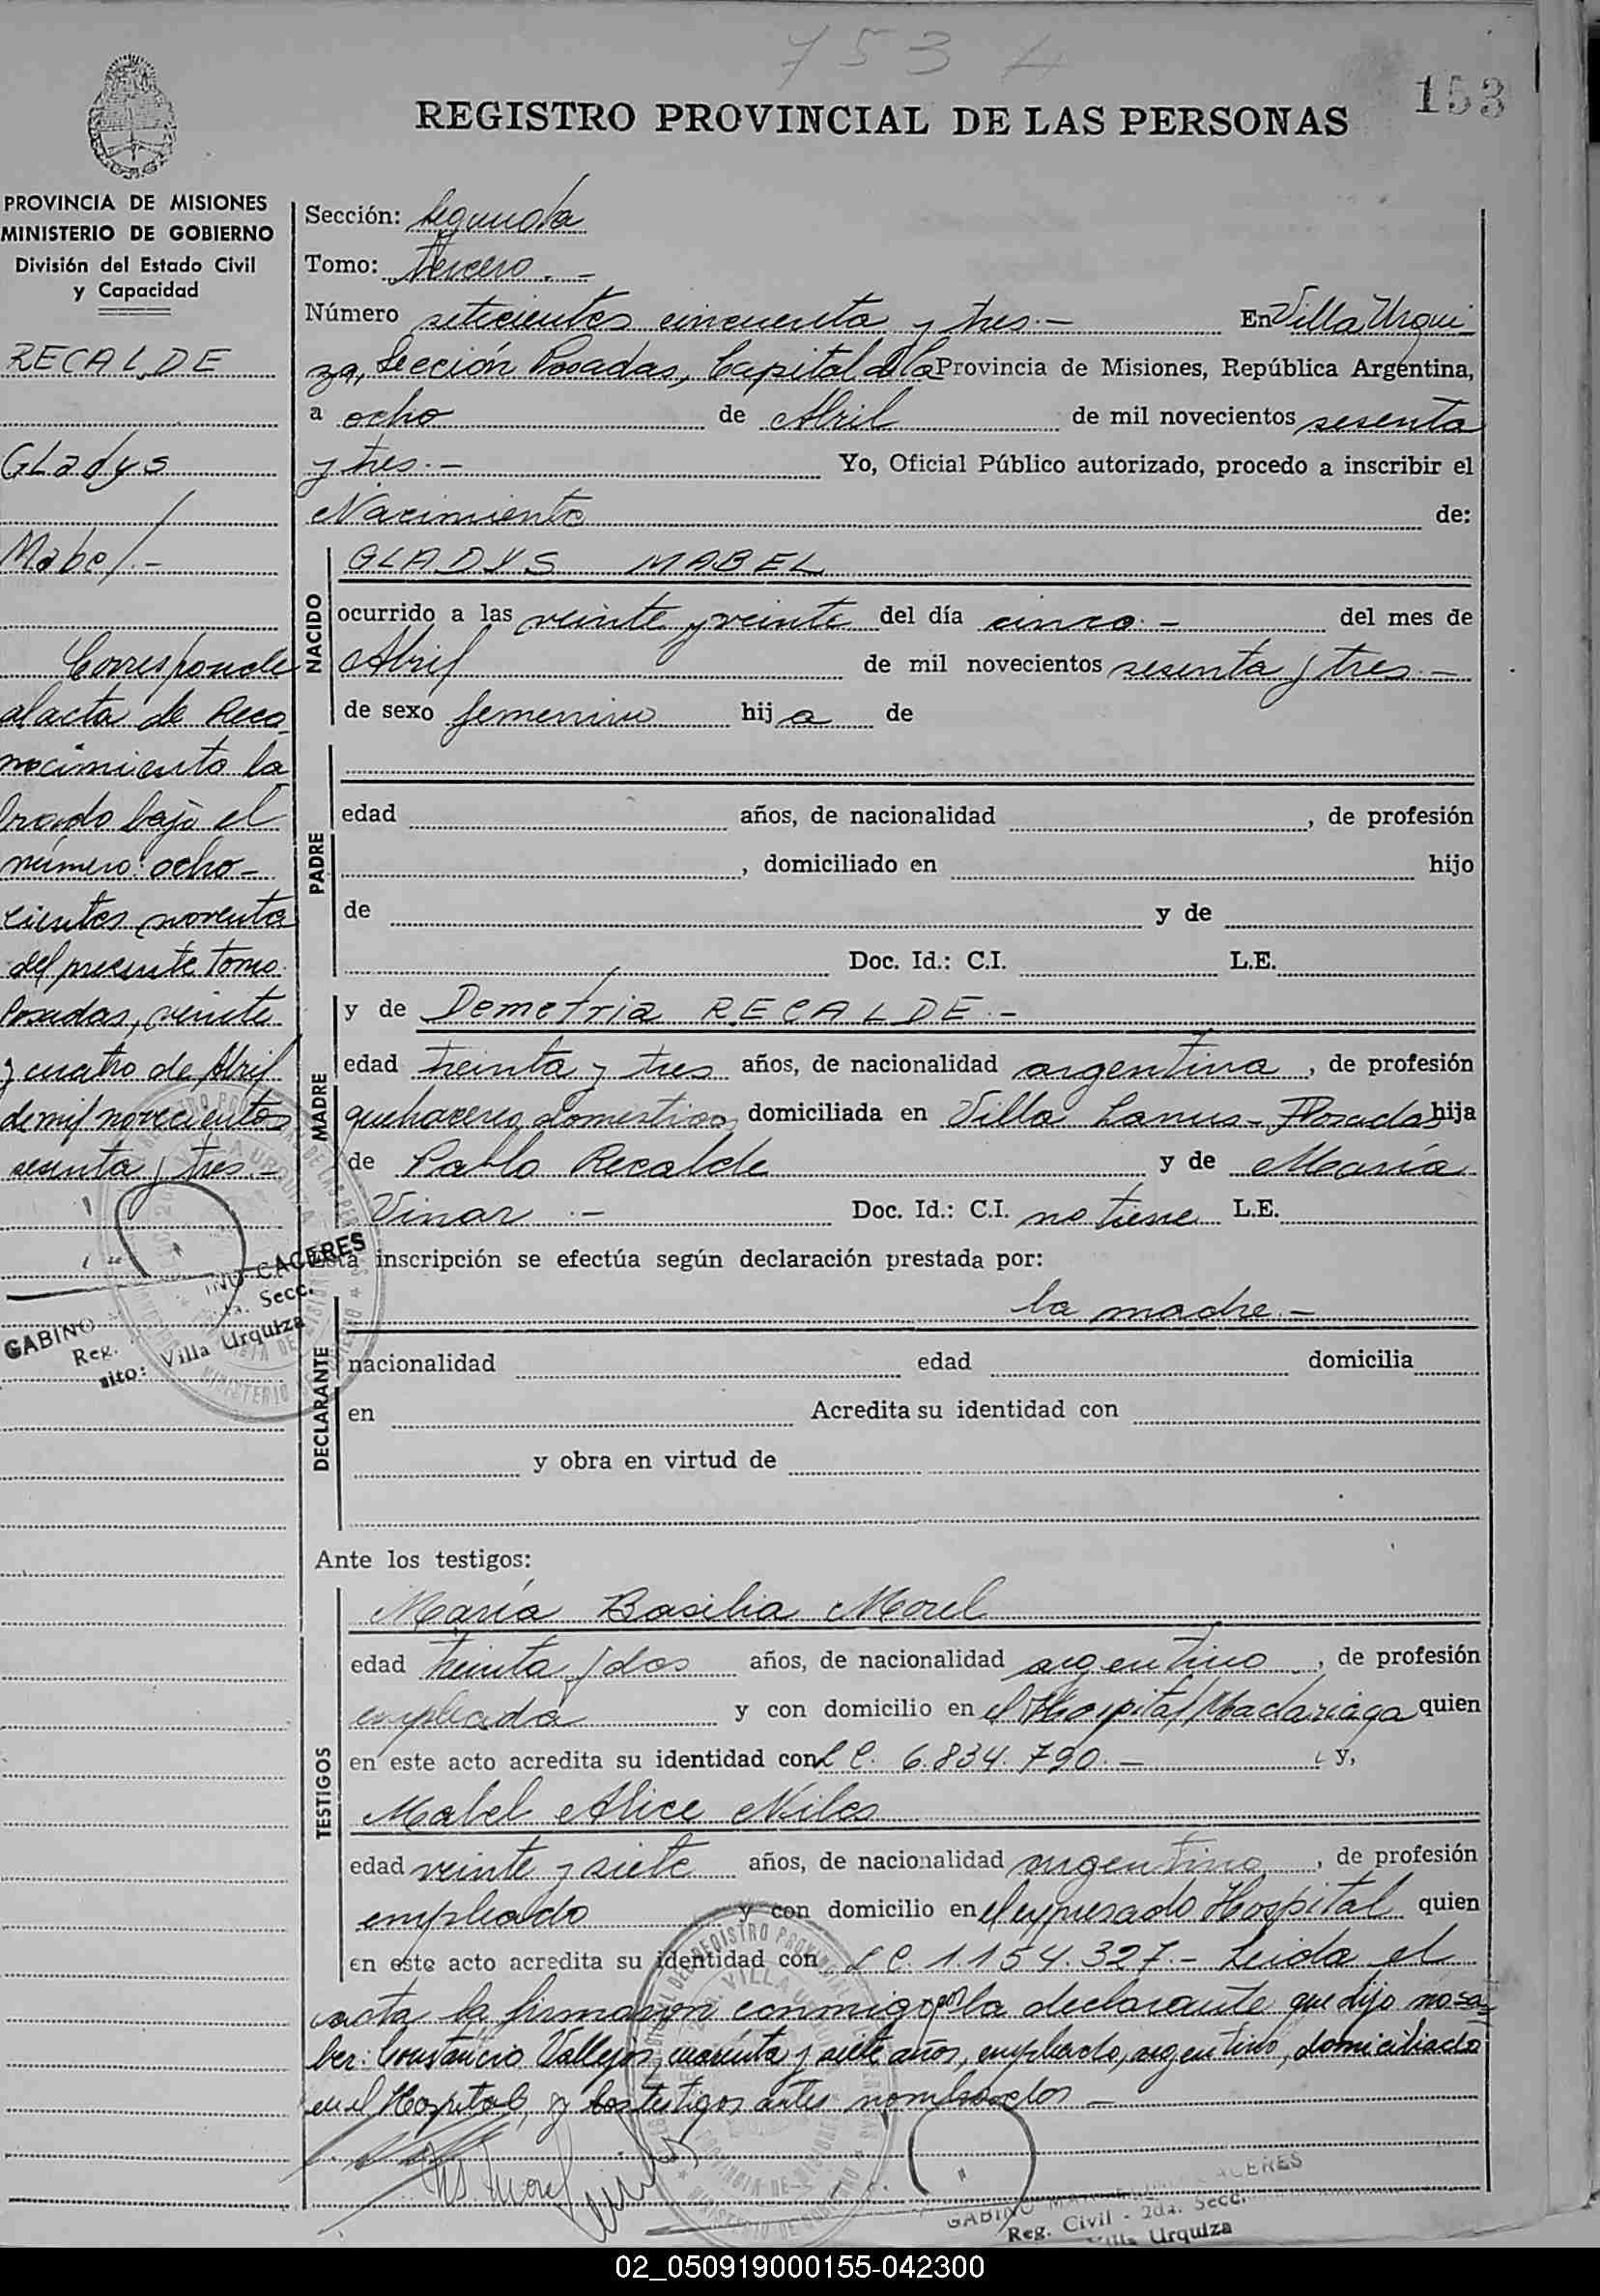 753
153
REGISTRO PROVINCIAL DE LAS PERSONAS
PROVINCIA DE MISIONES
MINISTERIO DE GOBIERNO
División del Estado Civil
y Capacidad
RECALDE
Gladys
Mabel.-
Corresponde
al acta de Reco
nocimiento la
brado bajo el
número: ocho-
cientos noventa
del presente tomo.
Posadas, veinte
y cuatro de Abril
de mil novecientos
sesenta y tres.-
GABINO CACERES
Reg. 2da. Secc.
Villa Urquiza
Sección: segunda
Tomo: tercero.-
Número setecientos cincuenta y tres.- En Villa Urqui
za, Sección Posadas, Capital de la Provincia de Misiones, República Argentina,
a ocho de Abril de mil novecientos sesenta
y tres.- Yo, Oficial Público autorizado, procedo a inscribir el
Nacimiento de:
NACIDO
GLADYS MABEL
ocurrido a las veinte y veinte del día cinco.- del mes de
Abril de mil novecientos sesenta y tres.-
de sexo femenino hija de
PADRE
edad años, de nacionalidad , de profesión
, domiciliado en hijo
de y de
Doc. Id.: C.I. L.E.
MADRE
y de Demetria RECALDE.-
edad treinta y tres años, de nacionalidad argentina, de profesión
quehaceres domesticos domiciliada en Villa Lanus - Posadas hija
de Pablo Recalde y de María
Vinar.- Doc. Id.: C.I. no tiene L.E.
Esta inscripción se efectúa según declaración prestada por:
la madre.-
DECLARANTE
nacionalidad edad domicilia
en Acredita su identidad con
y obra en virtud de
Ante los testigos:
TESTIGOS
María Basilia Morel
edad treinta y dos años, de nacionalidad argentino, de profesión
empleada y con domicilio en el Hospital Madariaga quien
en este acto acredita su identidad con L C. 6.834.790.- y,
Mabel Alice Niles
edad veinte y siete años, de nacionalidad argentino, de profesión
empleado y con domicilio en el expresado Hospital quien
en este acto acredita su identidad con L C. 1.154.327.- Leida el
acta la firmaron conmigo por la declarante que dijo no sa
ber: Constancio Vallejos, cuarenta y siete años, empleado, argentino, domiciliado
en el Hospital, y los testigos antes nombrados -
Ms. Morel
GABINO CACERES
Reg. Civil - 2da. Secc.
Villa Urquiza
02_050919000155-042300